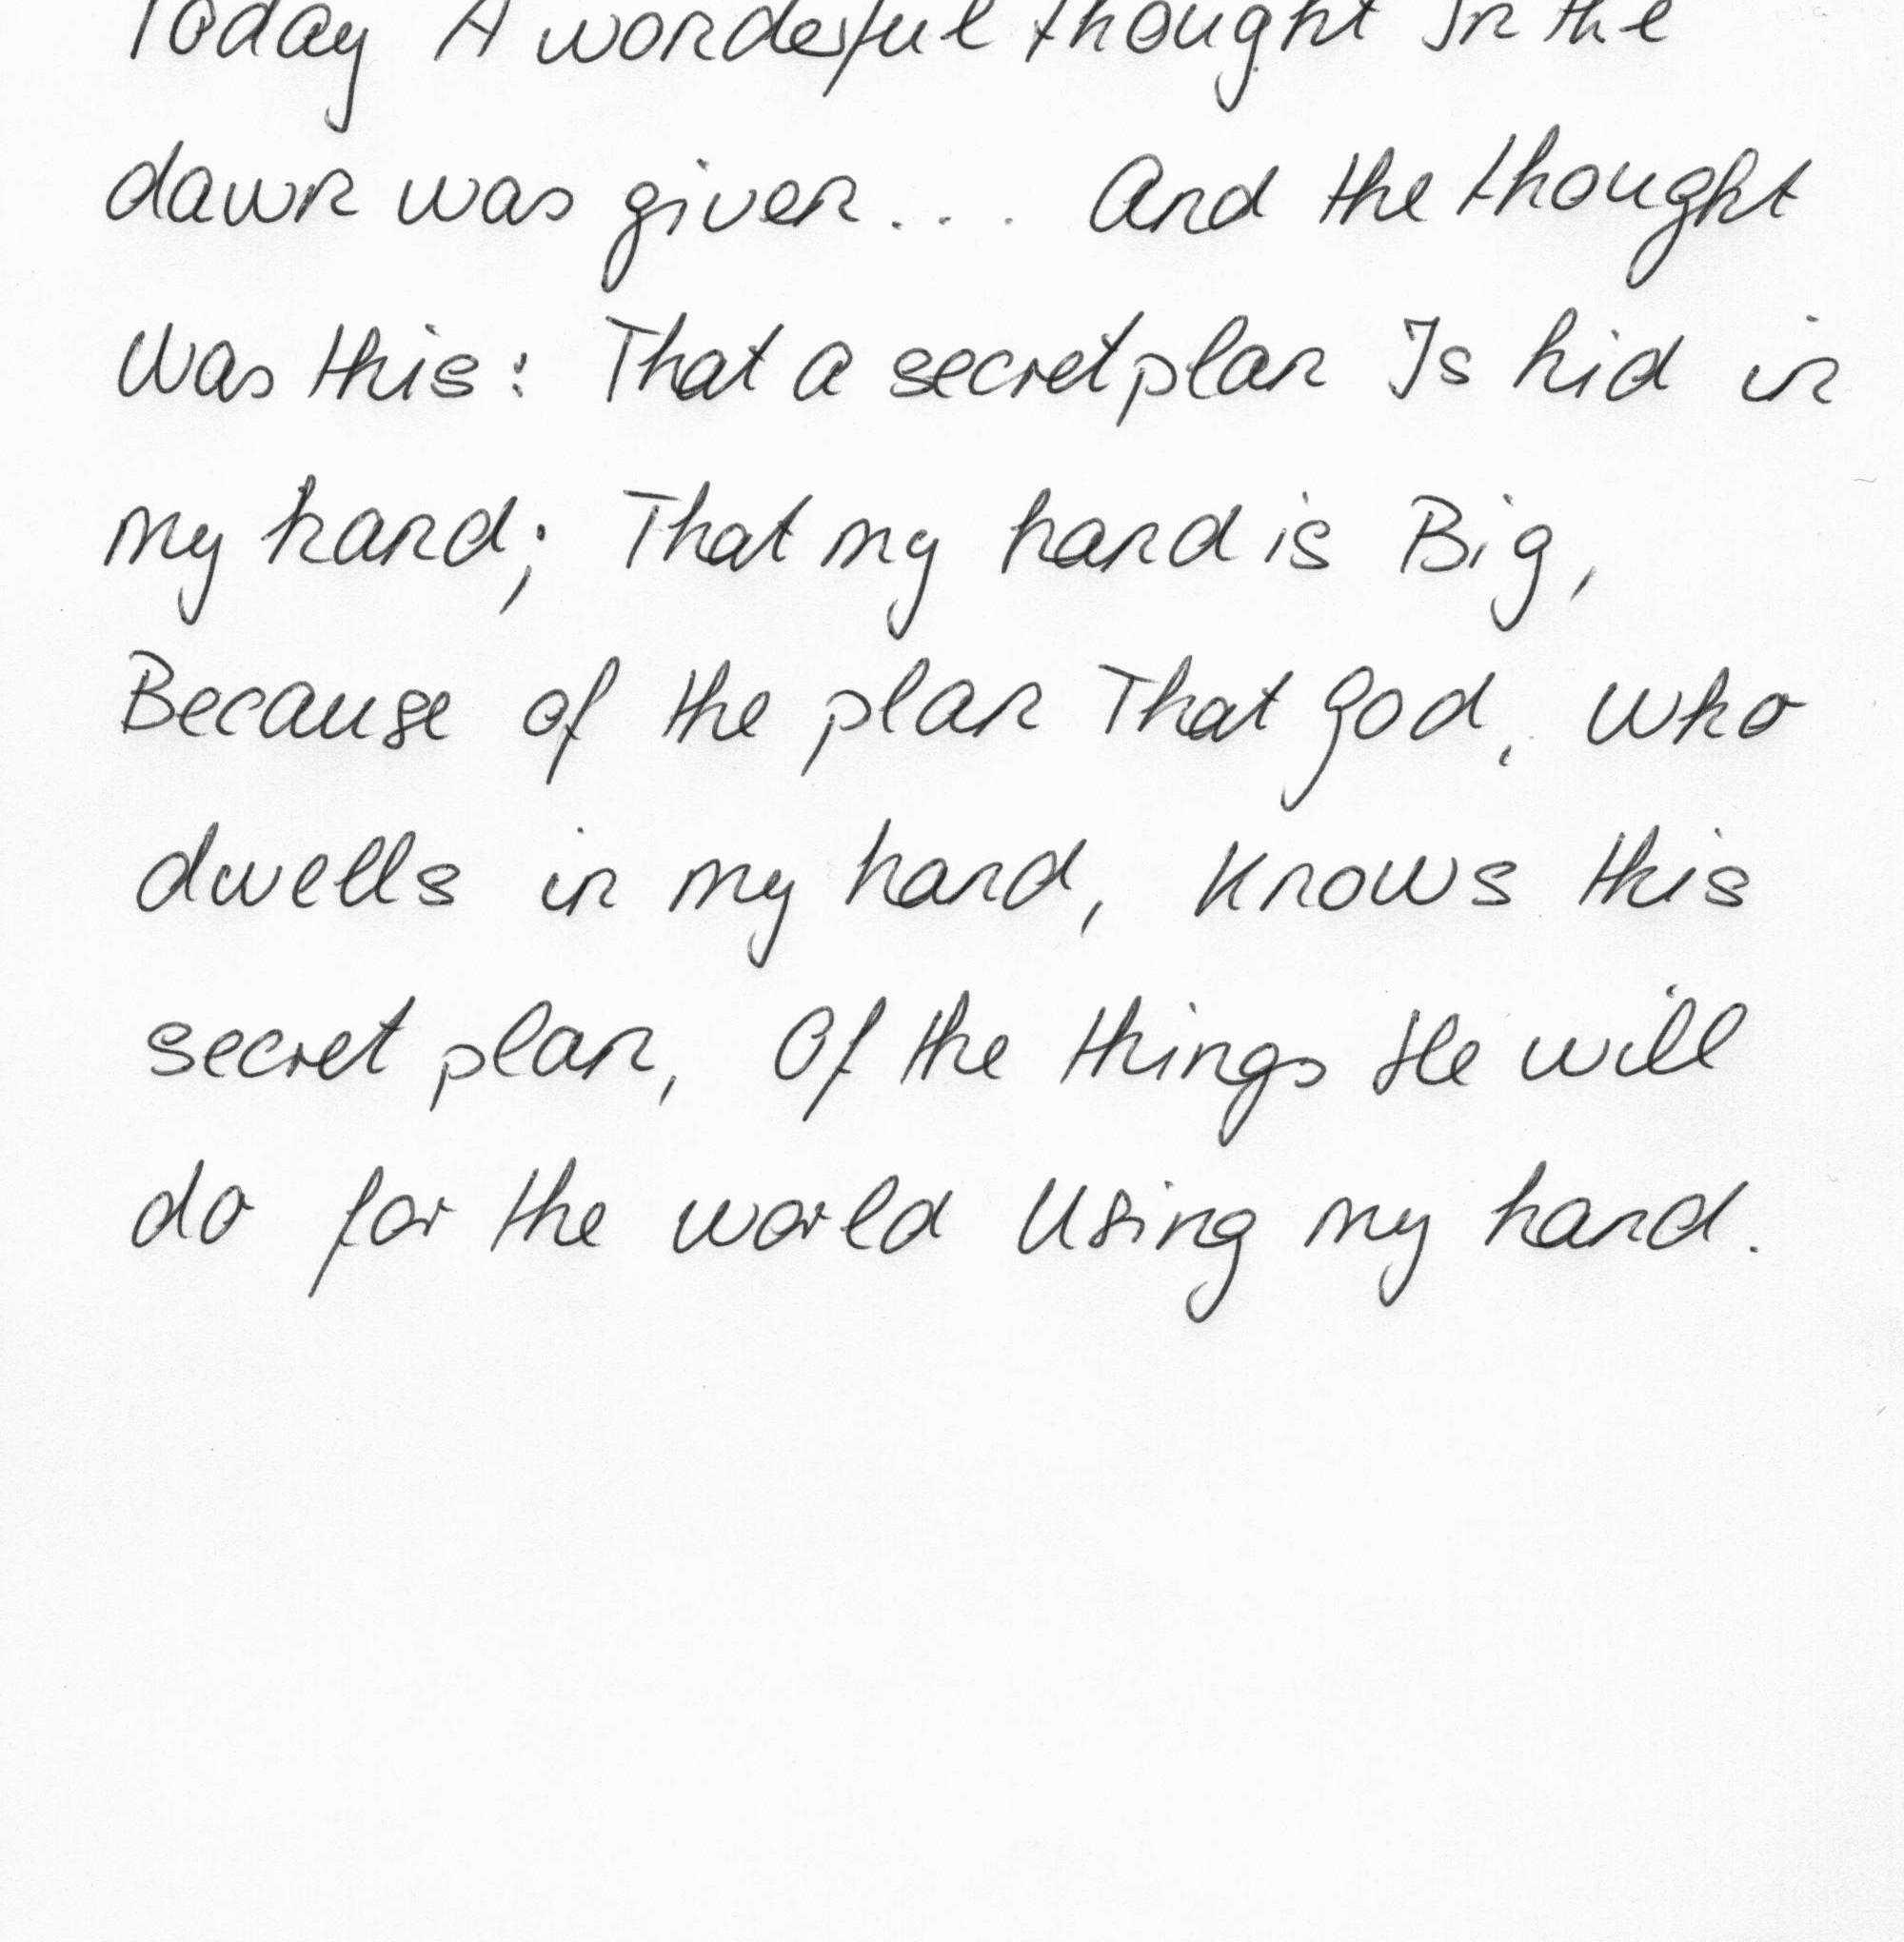 Today A wonderful thought In the
dawn was given... And the thought
Was this: That a secret plan Is hid in
my hand; That my hand is Big,
Because of the plan That God, Who
dwells in my hand, Knows this
secret plan, Of the things He will
do for the world Using my hand.